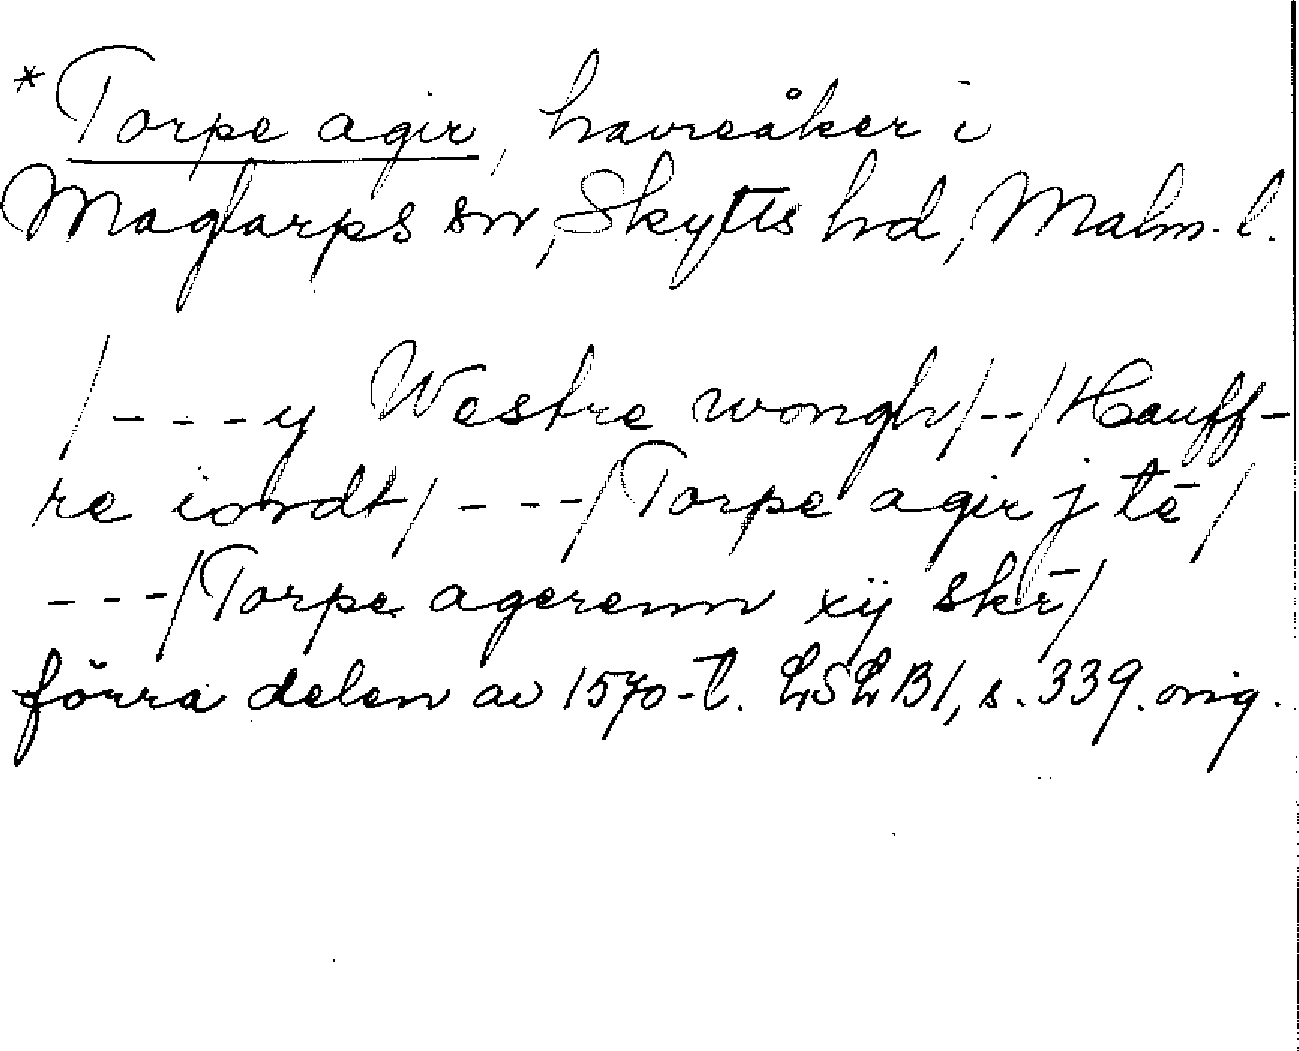 *Torpe agir, havreåker i
Maglarps sn, Skytts hd, Malm. l.
/---y Westre wongh/--/Hauff-
re iordt/---/Torpe agir j tē/
---/Torpe agerenn xij skr̄/
förra delen av 1570-t. LSLB1, s. 339. orig.